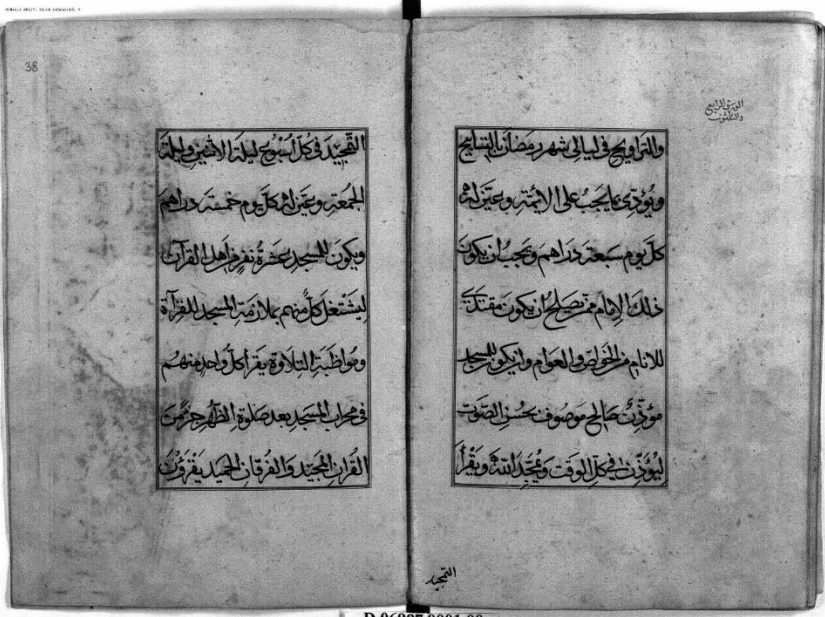 الورق الرابع
والثلثون
والتراويح في ليالي شهر رمضان بالتسابيح
ويؤدى ما يجب على الائمة وعين له
كل يوم سبعة دراهم ويجب ان يكون
ذلك الامام ممن يصلح ان يكون مقتدى
للانام من الخواص والعوام وان يكون للمسجد
مؤذن صالح موصوف بحسن الصوت
ليؤذن في كل الوقت ويمجد الله ويقرأ
التمجيد
38
التمجيد في كل اسبوع ليلة الاثنين وليلة
الجمعة وعين له كل يوم خمسة دراهم
ويكون للمسجد عشرة نفر من اهل القرآن
ليشتغل كل منهم بملازمة المسجد للقراة
ومواظبة التلاوة يقرأ كل واحد منهم
في محراب المسجد بعد صلوة الظهر جزء من
القران المجيد والفرقان الحميد يقرؤن